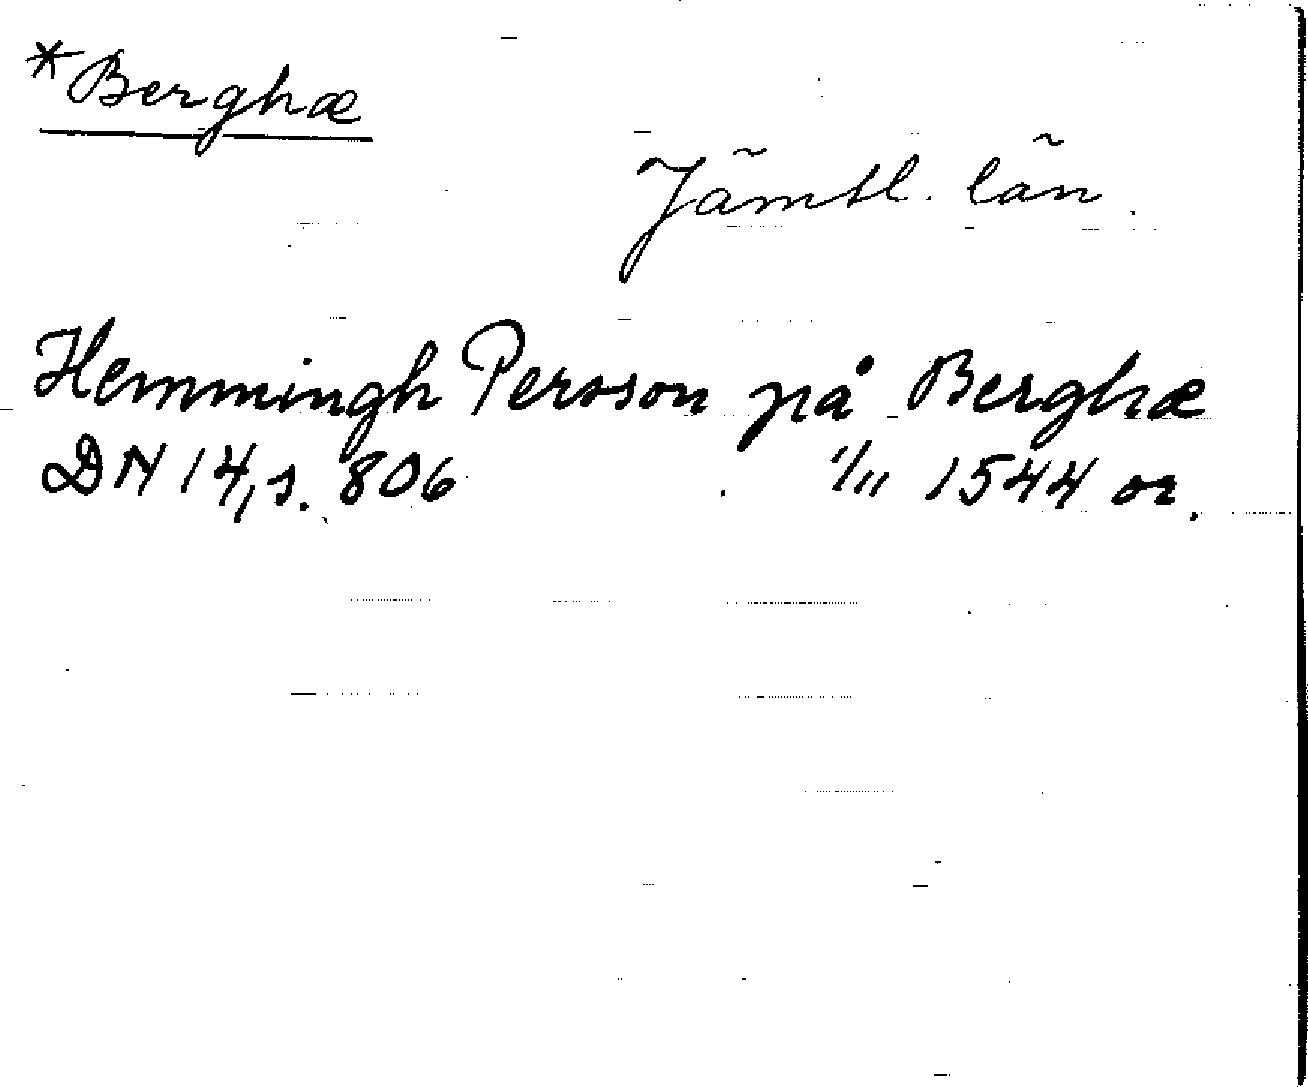 *Berghæ
Jämtl. län.
Hemmingh Persson på Berghæ
DN 14, s. 806 1/11 1544 or.